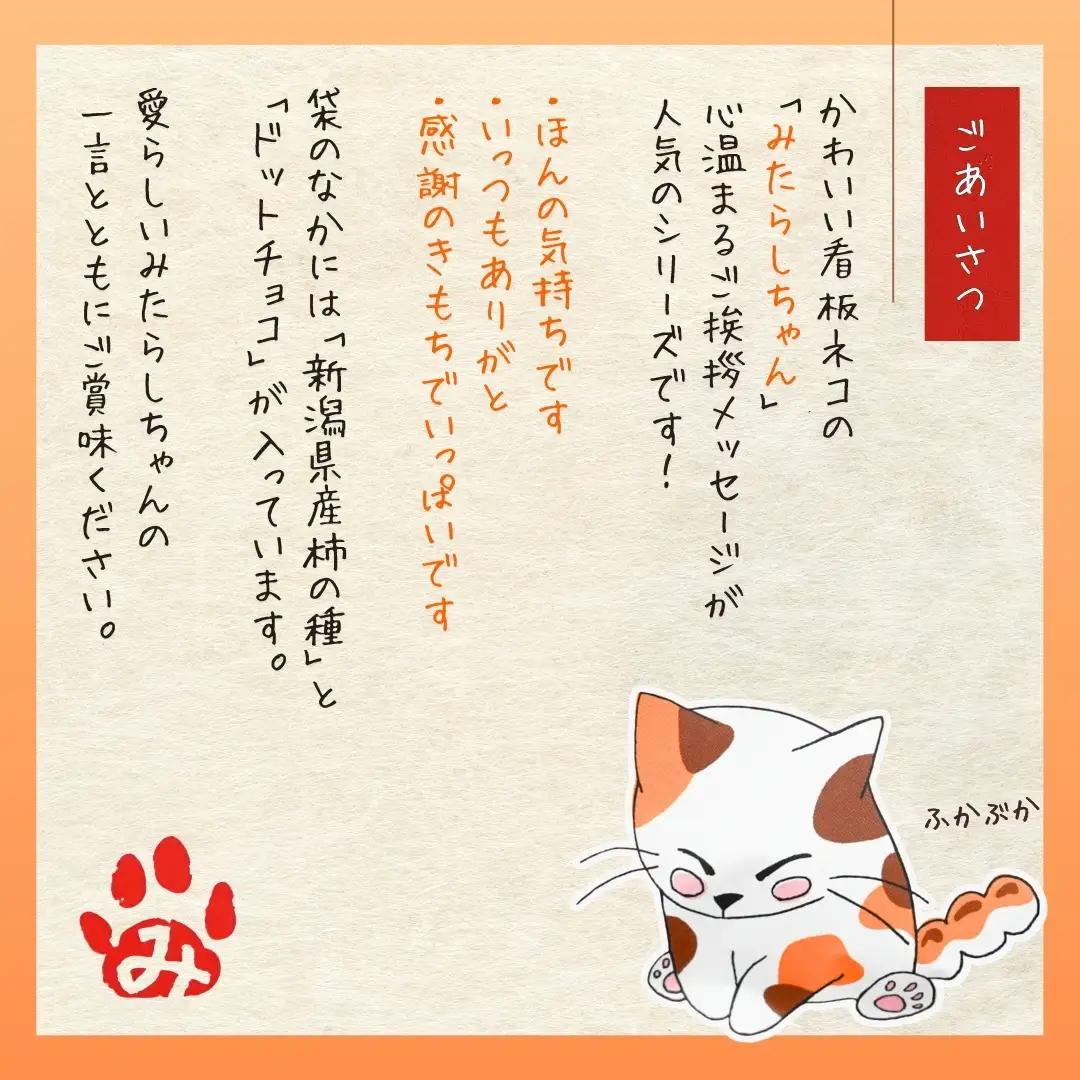 ごあいさつ
かわいい看板ネコの
「みたらしちゃん」
心温まるご挨拶メッセージが
人気のシリーズです！
・ほんの気持ちです
・いっつもありがと
・感謝のきもちでいっぱいです
袋のなかには「新潟県産柿の種」と
「ドットチョコ」が入っています。
愛らしいみたらしちゃんの
一言とともにご賞味ください。
ふかぶか
み